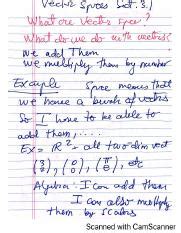 Vector Spaces Sect. 3.1
What are Vector Spaces?
What do we do with vectors?
we add Them
we multiply them by number
Example Space means that
we have a bunch of vectors
So I have to be able to
add them,....
Ex = R² = all two dim vect
(3 2), (0 0), (π 5), etc
Algebra: I can add them
I can also multiply
them by scalars
Scanned with CamScanner